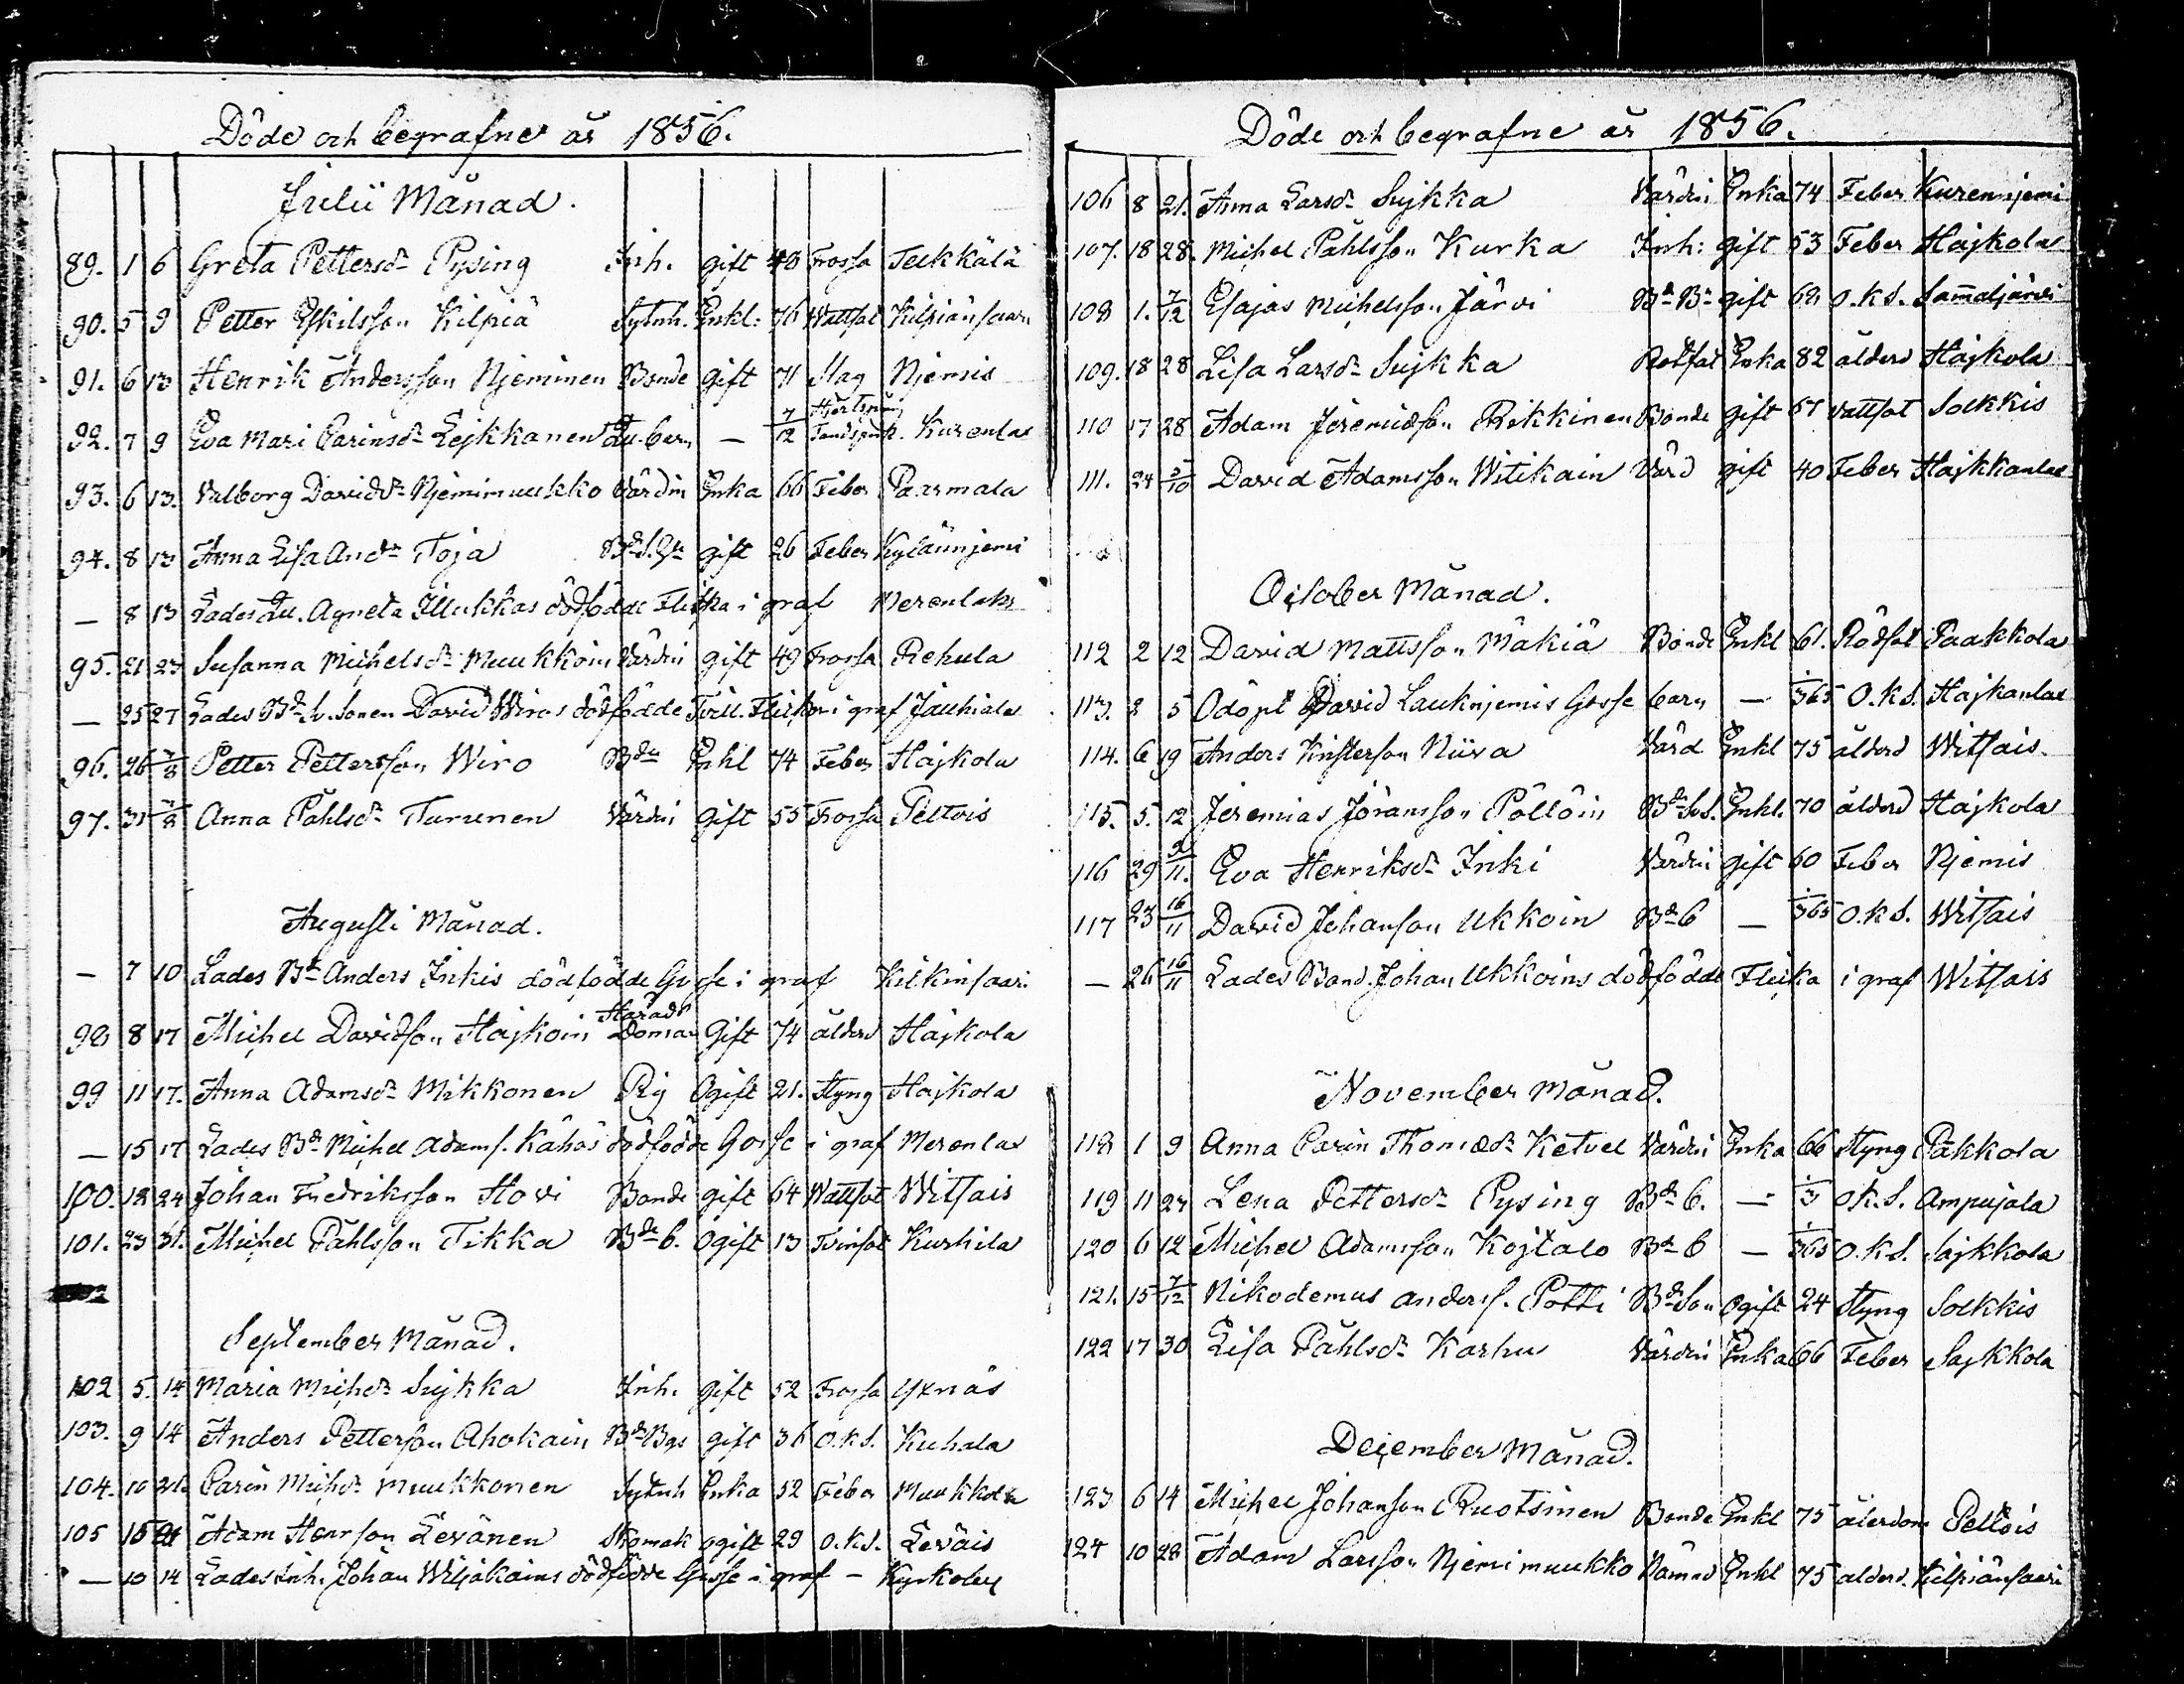 Döde och begrafne år 1856.
Julii Månad.
89. 1 6 Greta Pettersdr Pysing Inh. gift 48 Frossa Teckkälä
90. 5 9 Petter Eskilsson Kilpiä Sytnh. Enkl: 76 Wattsot Kilpiänsaari
91. 6 13 Henrik Andersson Njeminen Bonde gift 71 Slag Njemis
92. 7 9 Eva Mari Carinsdr Lejkkanen Qu. barn — 7/12 Kurenlax
93. 6 13. Valborg Davidsdr Njemimuukko Värdin Enka 66 Feber Paarmala
94. 8 13 Anna Lisa Andr Toja gift 26 Feber Kyläänjemi
— 8 13 Lades Qu. Agneta Illukkas dödfödde Flicka i graf Merenlax
95. 21 23 Susanna Michelsdr Muukkoin Värdin gift 49 Frossa Rehula
— 25 27 Lades Bd. S. Sonen David Wiros dödfödde Tvill. Flickor i graf Jauhiala
96. 26 3/8 Petter Pettersson Wiro Bde Enkl 74 Feber Hajkola
97. 31 3/8 Anna Påhlsdr Turunen Värdin gift 55 Frossa Peltois
Augusti Månad.
— 7 10 Lades Bd Anders Inkis dödfödde Gosse i graf Kilkinsaari
98 8 17 Michel Davidson Hajkoin Härads Domar Gift 74 ålderd Hajkola
99 11 17. Anna Adamsdr Mikkonen Pig Ogift 21. Styng Hajkola
— 15 17 Lades Bd Michel Adams. Kähäs dödfödde Gosse i graf Merenlax
100. 18 24 Johan Fredriksson Hovi Bonde gift 64 Wattsot Witsais
101. 23 31. Michel Påhlsson Tikka Bde b. Ogift 13 Tvinsot Kurhila
September Månad.
102 5. 14 Maria Michsdr Sujkka Inh. gift 52 Frossa Yxnäs
103. 9 14 Anders Petterson Ahokain Bd Bgs gift 36 O.k.S. Kuhala
104. 10 21. Carin Michsdr Muukkonen Sytnh Enka 52 Feber Muukkola
105 15 21 Adam Henrson Levänen Skomak ogift 29 O.k.S. Leväis
— 10 14 Lades Inh. Johan Wiljakains dödfödde Gosse i graf — Kyrkoby
Döde och begrafne år 1856.
106 8 21. Anna Larsdr Sujkka Värdin Enka 74 Feber Kurennjemi
107. 18 28. Michel Påhlsson Kurka Inh: gift 53 Feber Hajkola
108 1. 7/12 Esajas Michelsson Järvi Bd Br gift 68 O.k.S. Sam̄aljärvi
109. 18 28 Lisa Larsdr Sujkka Rotfat Enka 82 ålderd Hajkola
110 17 28 Adam Jeremiæson Rikkinen Bonde gift 67 Vattsot Solkkis
111. 24 5/10 David Adamsson Witikain Värd gift 40 Feber Hajkkanlax
October Månad.
112 2 12 David Mattsson Mäkiä Bonde Enkl 61. Rödsot Paakkola
113. 2 5 Odöpt David Lauknjemis Gosse barn — 1/365 O.k.S. Hajkanlax
114. 6 19 Anders Kristerson Niiva Värd Enkl 75 ålderd Witsais.
115. 5. 12 Jeremias Jöransson Pöllöin Enkl. 70 ålderd Hajkola
116 29 9/11. Eva Henriksdr Inki Värdin gift 60 Feber Njemis
117 23 16/11 David Johanson Ukkoin Bd b — 1/365 O.k.S. Witsais
— 26 16/11 Lades Bond. Johan Ukkoins dödfödde Flicka i graf Witsais
November Månad.
118 1 9 Anna Carin Thomædr Ketvel Värdin Enka 66 Styng Pakkola
119 11 27 Lena Pettersdr Pysing Bd b. — 1/3 O.k.S. Ampujala
120 6 12 Michel Adamsson Kojtalo Bd b — 1/365 O.k.S. Sajkkola
121. 15 7/12 Nikodemus Anders. Potti Bd Son ogift 24 Styng Solkkis
122 17 30 Lisa Påhlsdr Karhu Värdin Enka 66 Feber Sajkkola
December Månad.
123 6 14 Michel Johanson Ruotsinen Bonde Enkl 75 ålerdom Peltois
124 10 28 Adam Larsson Njemimuukko Enkl 75 ålderd. Kilpiänsaari